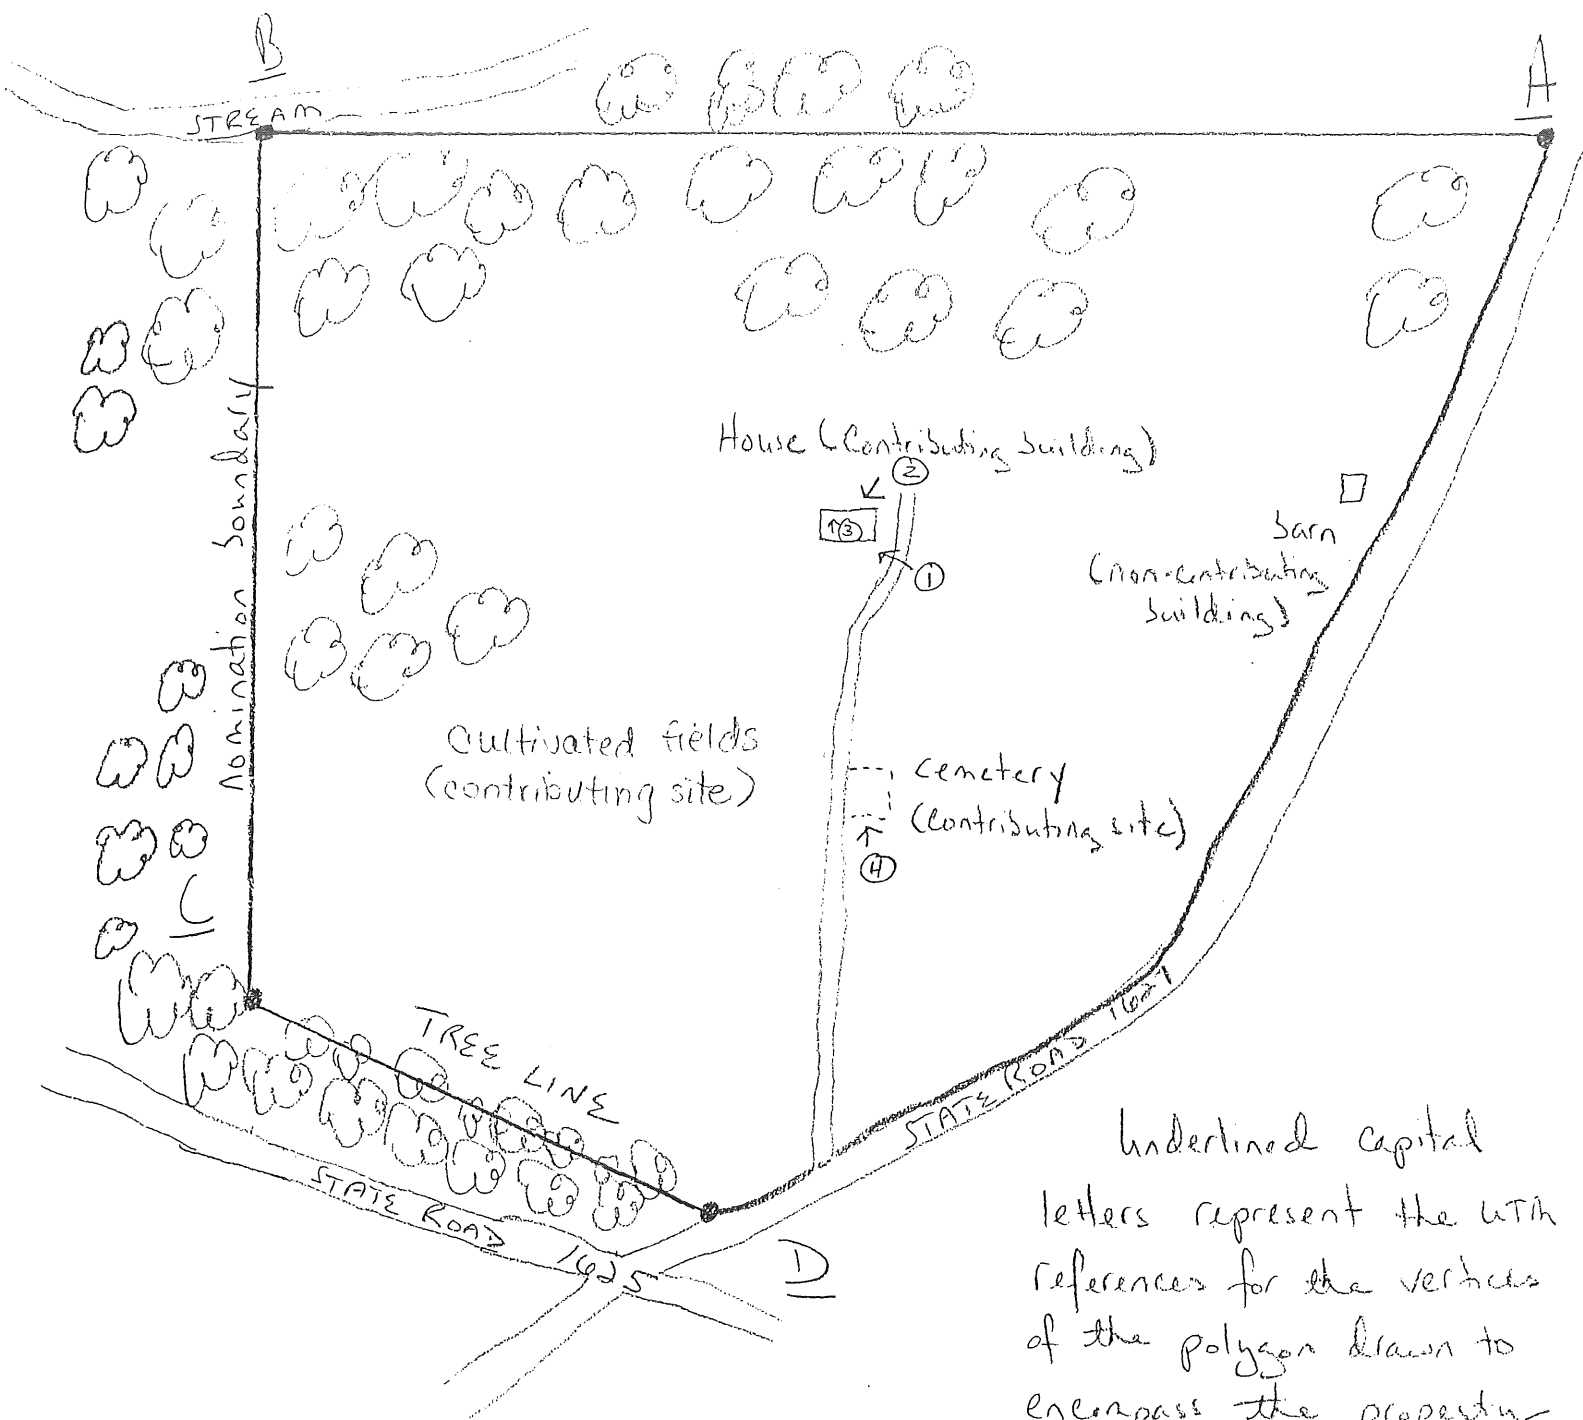 B
A
STREAM
nomination boundary
House (Contributing building)
2
3
1
barn
(non-contributing
building)
Cultivated fields
(contributing site)
cemetery
(contributing site)
4
C
TREE LINE
STATE ROAD 1627
STATE ROAD 1625
D
Underlined capital
letters represent the UTM
references for the vertices
of the polygon drawn to
encompass the property